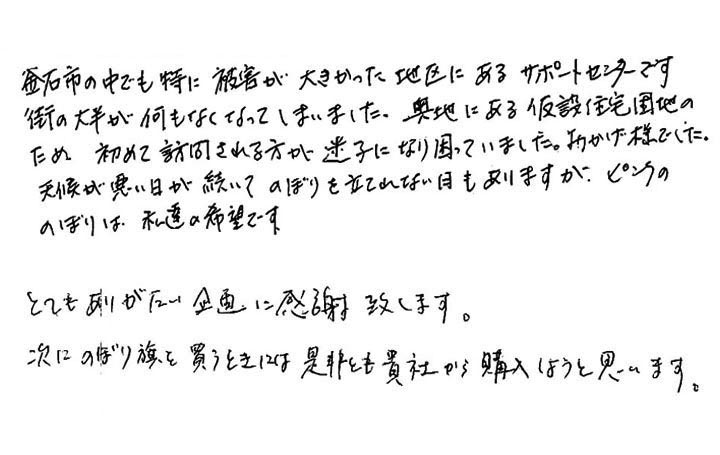 釜石市の中でも特に被害が大きかった地区にあるサポートセンターです
街の大半が何もなくなってしまいました。奥地にある仮設住宅団地の
ため 初めて訪問される方が迷子になり困っていました。おかげ様でした。
天候が悪い日が続いてのぼりを立てれない日もありますが、ピンクの
のぼりは、私達の希望です
とてもありがたい企画に感謝致します。
次にのぼり旗を買うときには是非とも貴社から購入しようと思います。